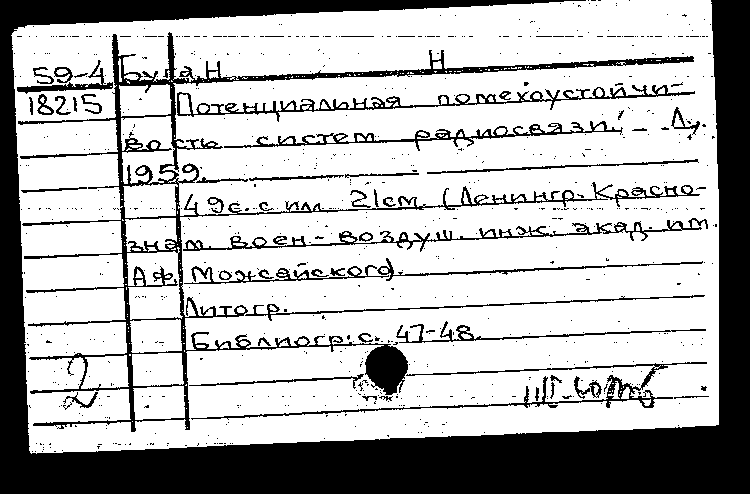 59-4 Буга, Н Н
18215 Потенциальная помехоустойчи-
вость систем радиосвязи. - Л.,
1959.
49с. с илл. 21см. (Ленингр. Красно-
знам. воен-воздуш. инж. акад. им.
А.Ф. Можайского).
Литогр.
Библиогр: с. 47-48.
2